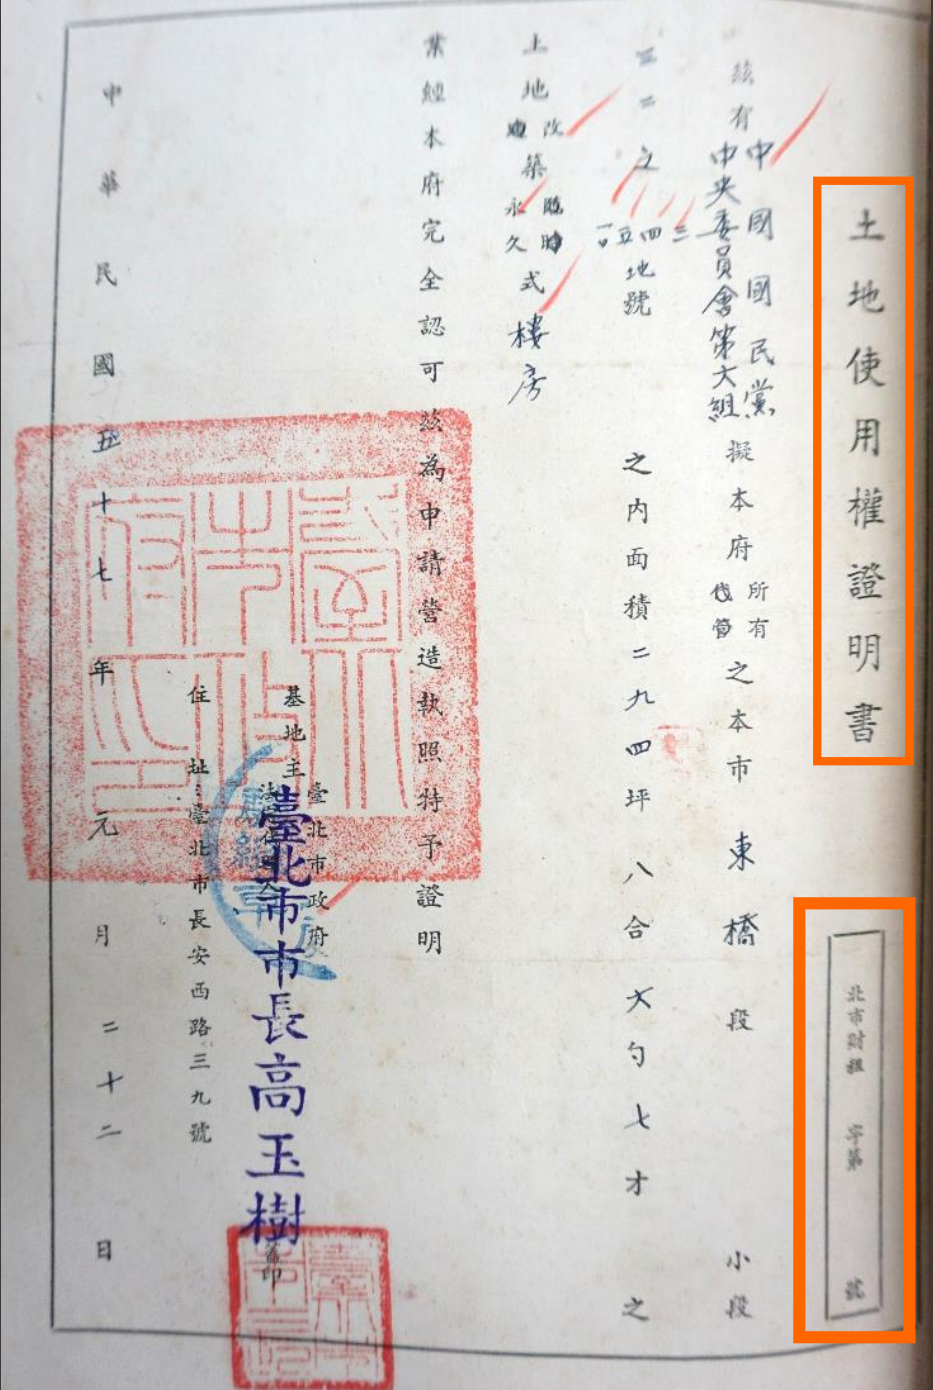 土地使用權證明書
北市財租 字第 號
茲有中國國民黨
中央委員會第六組
擬本府所有
代管
之本市東橋段 小段
三二之
三四五
地號之內面積二九四坪八合六勺七才之
土地改
建
築臨時
永久
式樓房
業經本府完全認可茲為申請營造執照特予證明
基地主臺北市政府
法定代理人
臺北市市長高玉樹
蓋印
住址:臺北市長安西路三九號
中華民國五十七年元月二十二日
臺北市政府之印